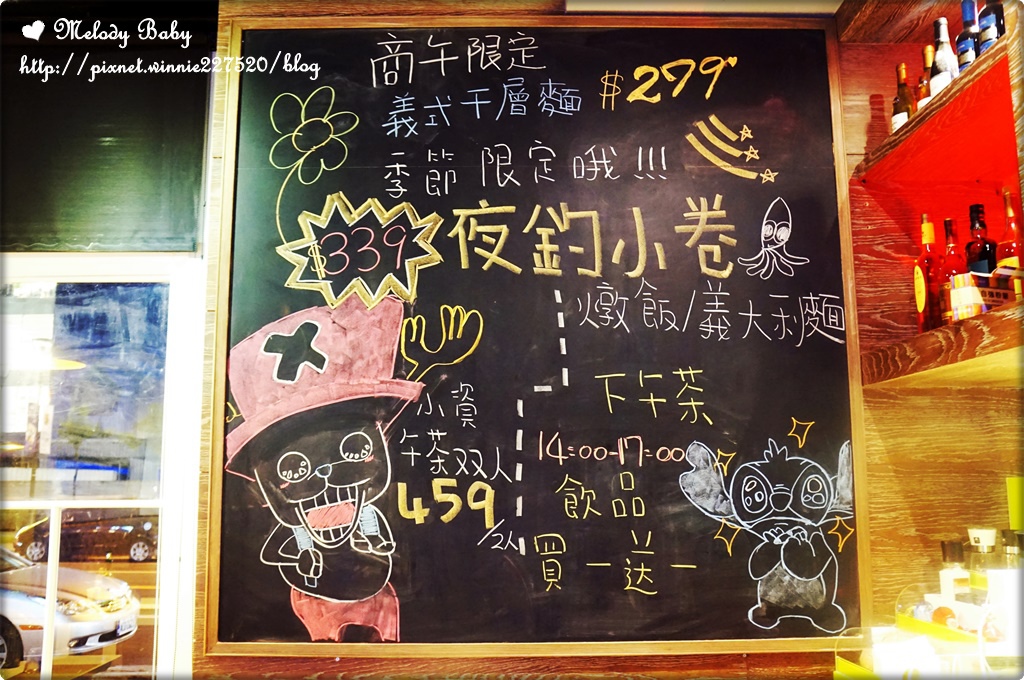 Melody Baby
http://pixnet.winnie227520/blog
商午限定
義式千層麵 $279
季節限定哦!!!
$339
夜釣小卷
燉飯/義大利麵
小資
午茶双人
459
/2人
下午茶
14:00-17:00
飲品
買一送一